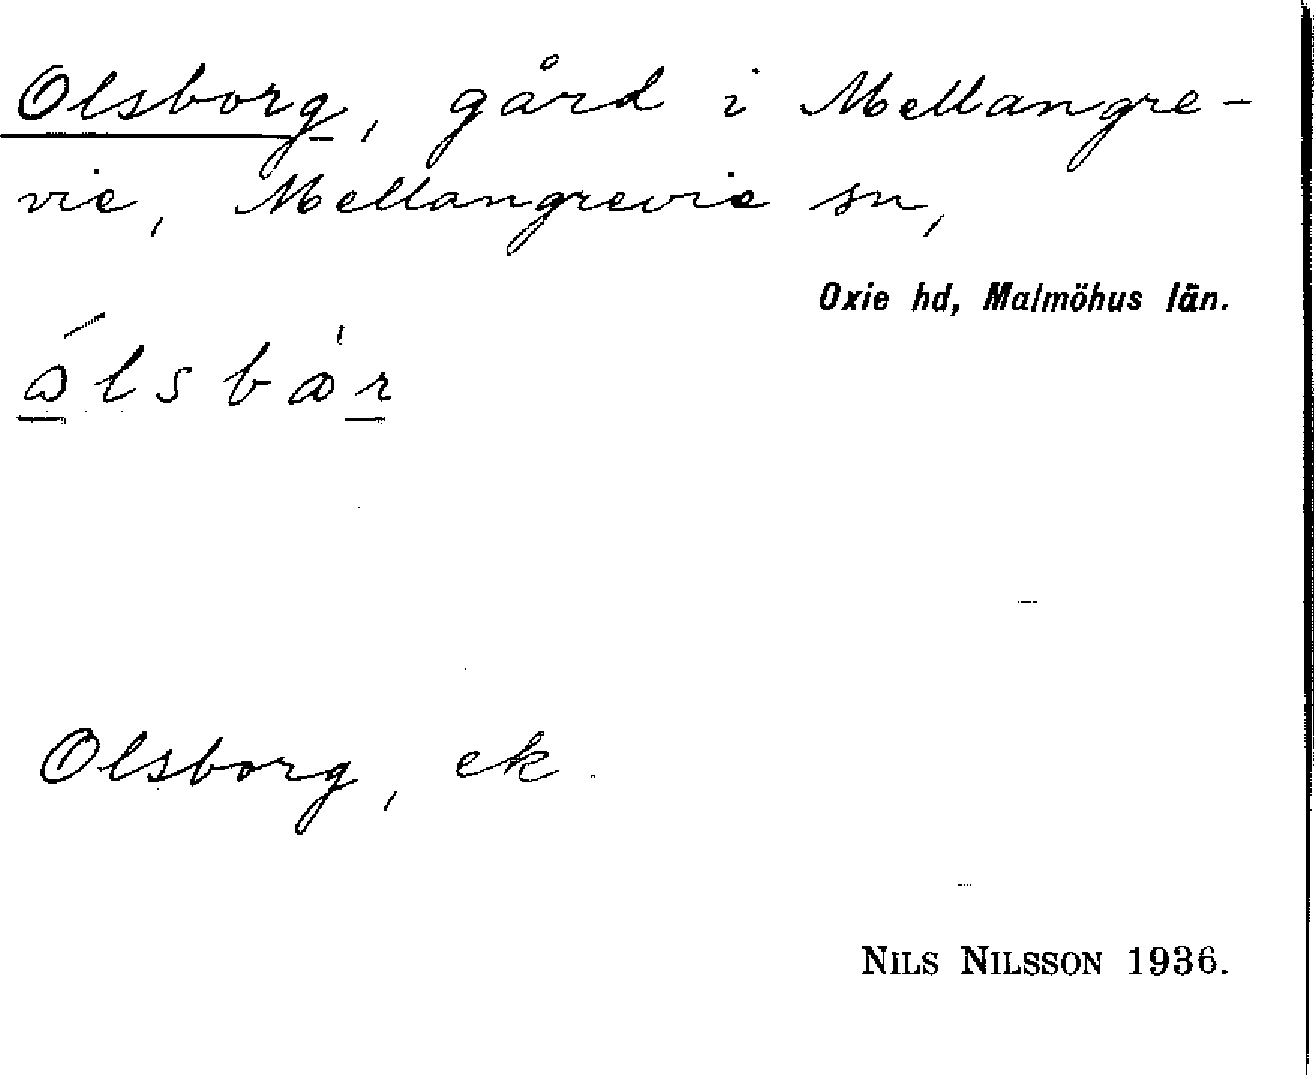 Olsborg, gård i Mellangre-
vie, Mellangrevie sn,
Oxie hd, Malmöhus län.
Olsborg, ek.
NILS NILSSON 1936.